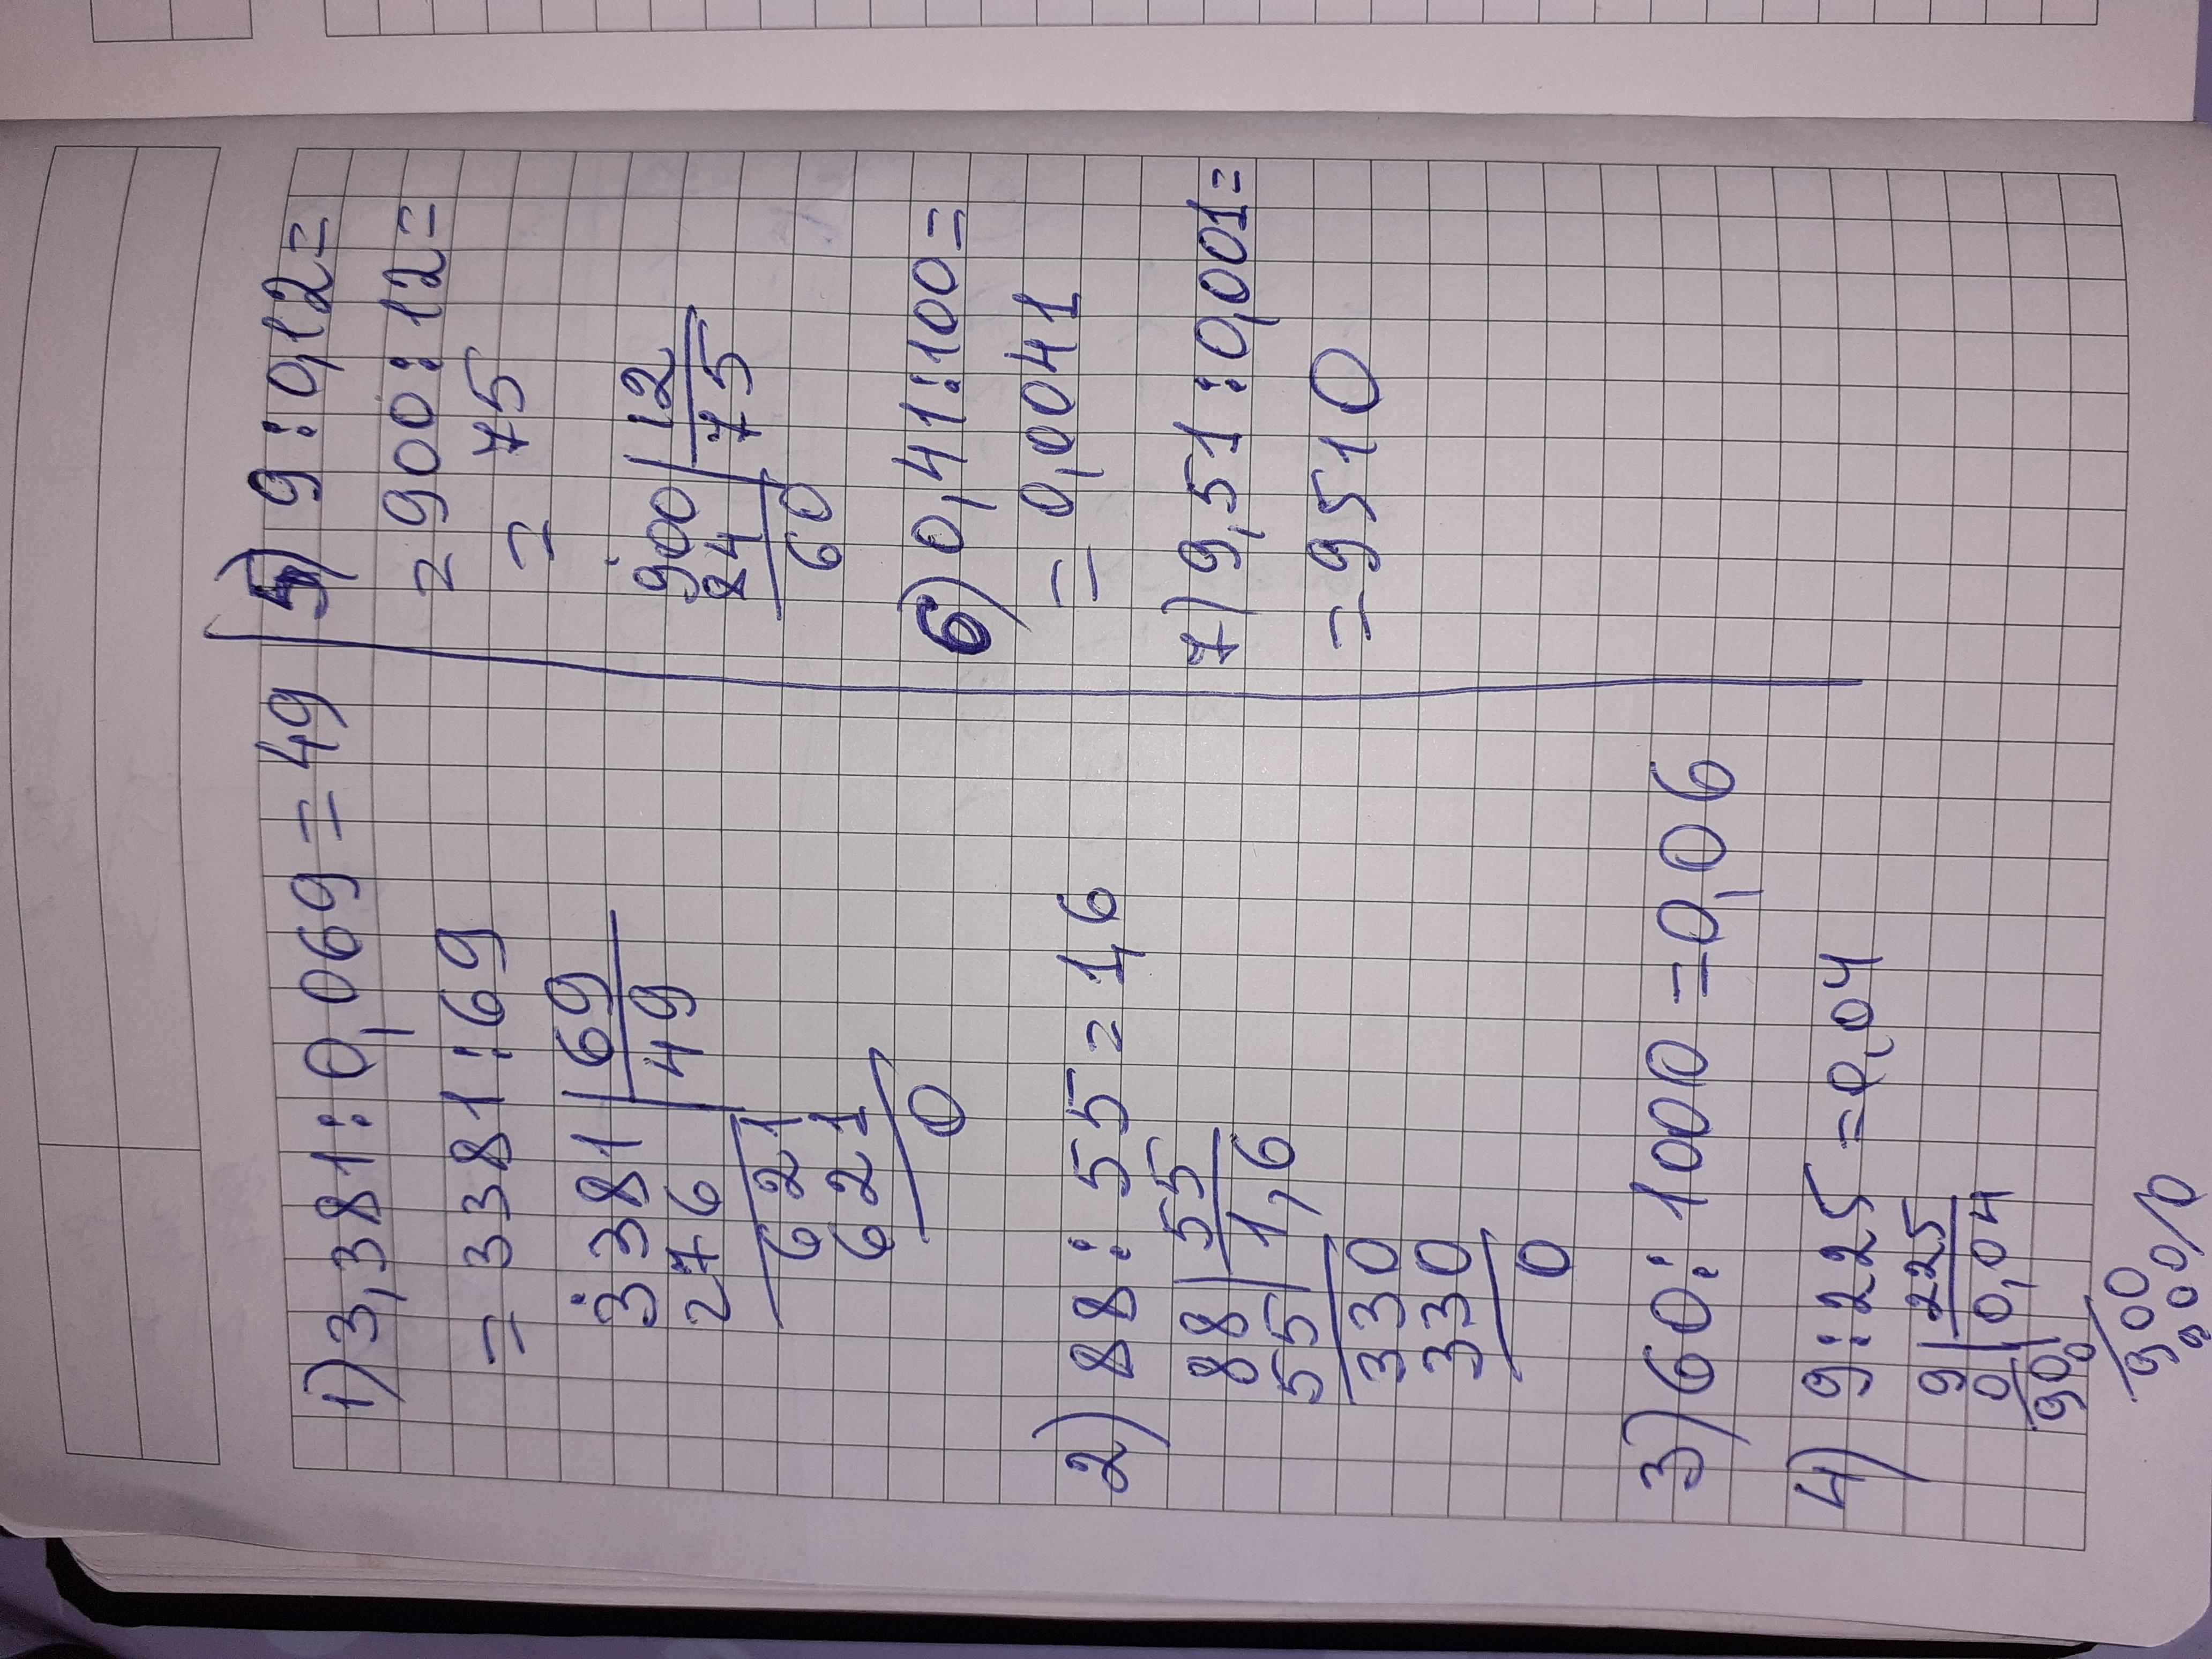 1) 3,381 : 0,069 = 49
= 3381 : 69
3381 | 69
276 | 49
621
621
0
2) 88 : 55 = 1,6
88 | 55
55 | 1,6
330
330
0
3) 60 : 1000 = 0,06
4) 9 : 225 = 0,04
9 | 225
0 | 0,04
90
0
900
900/0
5) 9 : 0,12 =
= 900 : 12 =
= 75
900 | 12
84 | 75
60
6) 0,41 : 100 =
= 0,0041
7) 9,51 : 0,001 =
= 9510